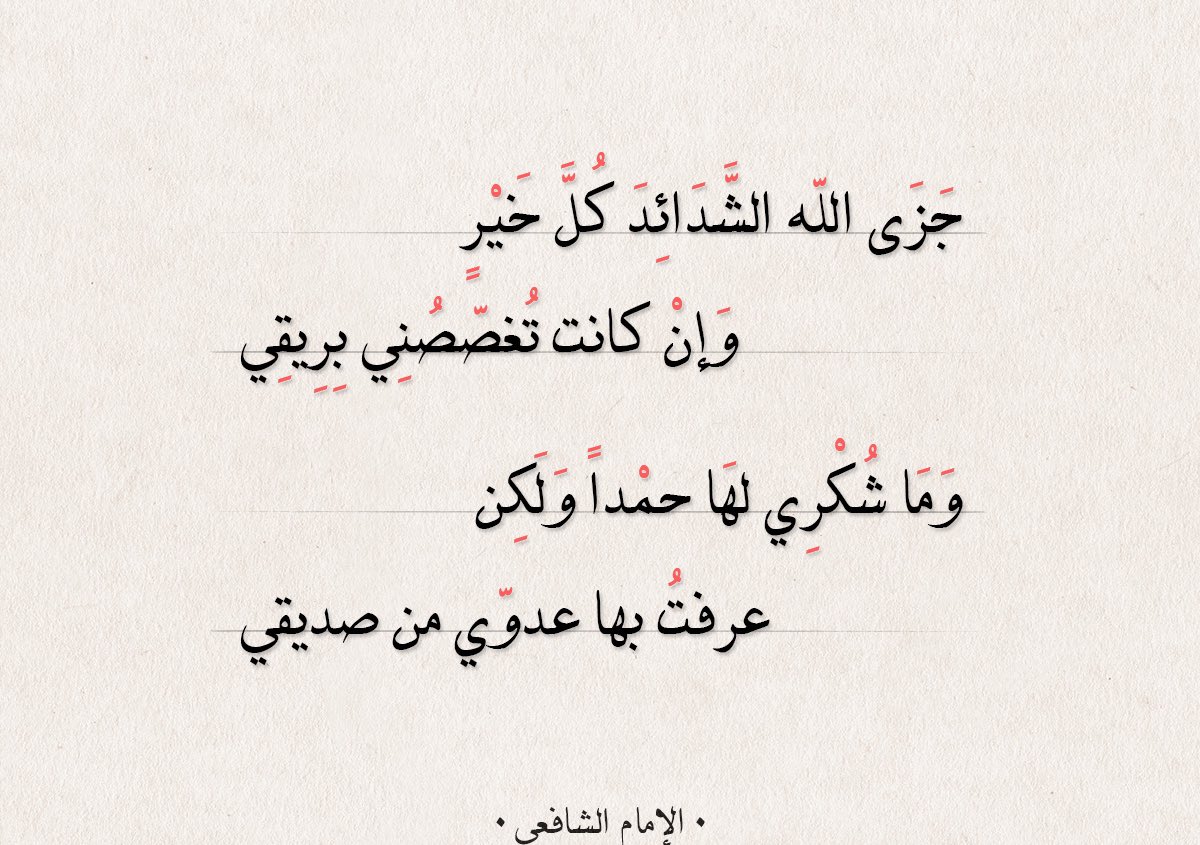 جَزَى اللّه الشَّدَائِدَ كُلَّ خَيْرٍ
وَإنْ كانت تُغصّصُنِي بِرِيقِي
وَمَا شُكْرِي لهَا حمْداً وَلَكِن
عرفتُ بها عدوّي من صديقي
• الإمام الشافعي •